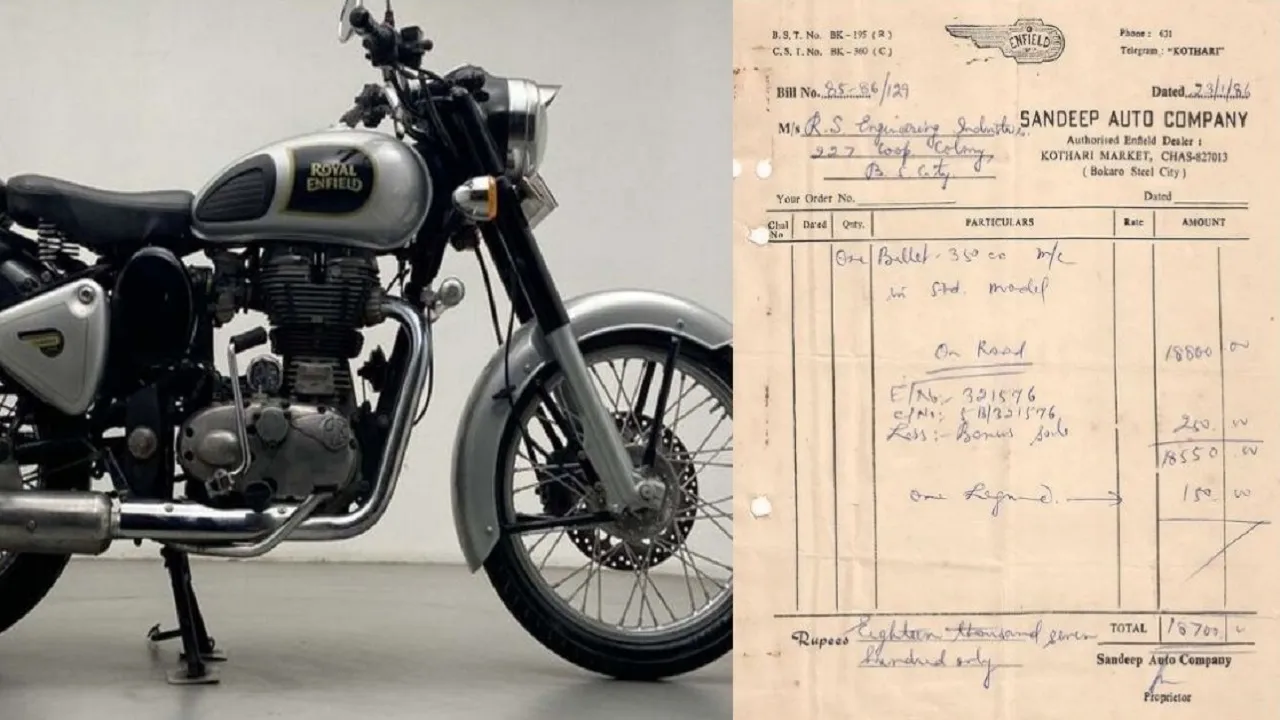 ROYAL
ENFIELD
B.S.T. No. BK-195 (R)
C.S.T. No. BK-360 (C)
ENFIELD
Phone : 631
Telegram : "KOTHARI"
Bill No. 85-86/129
Dated 23/1/86
M/s R.S. Engineering Industries.
227 Coop Colony,
B.S. City.
SANDEEP AUTO COMPANY
Authorised Enfield Dealer :
KOTHARI MARKET, CHAS-827013
( Bokaro Steel City )
Your Order No.
Dated
Chal No Dated Qnty. PARTICULARS Rate AMOUNT
One Bullet - 350 cc m/c
in Std. model
On Road 18800 00
E/No:- 321576
C/No:- 5B/321576,
Less :- Bonus 250. 00
18550 00
One 150 00
Rupees Eighteen thousand seven
hundred only
TOTAL 18700
Sandeep Auto Company
Proprietor